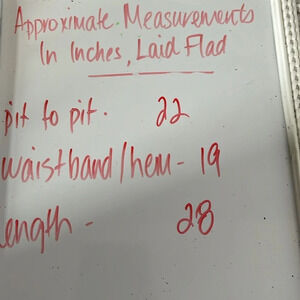 Approximate Measurements
In Inches, Laid Flad
pit to pit. 22
waistband/hem - 19
ength - 28